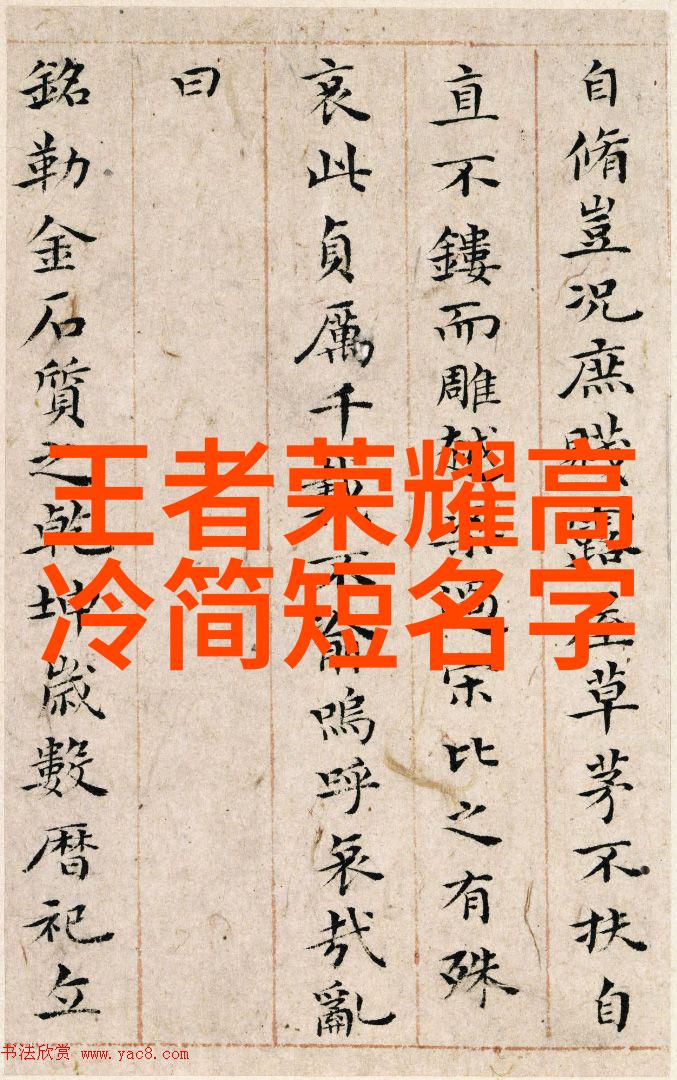 自脩豈况庶賤露屋草茅不扶自
直不鏤而雕越梁過宋比之有殊
哀此貞厲千載不渝嗚呼哀哉亂
曰
銘勒金石質之乾坤歲數曆祀立
王者荣耀高
冷简短名字
书法欣赏 www.yac8.com